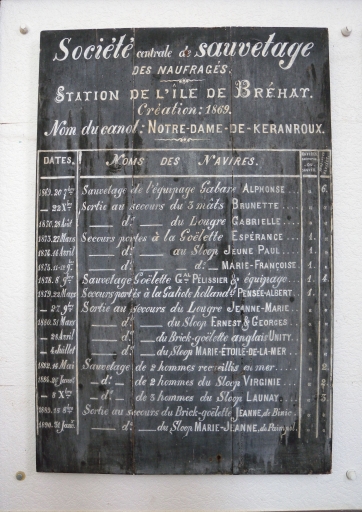 Société centrale de sauvetage
DES NAUFRAGÉS.
STATION DE L'ÎLE DE BRÉHAT.
Création: 1869.
Nom du canot: NOTRE-DAME-DE-KERANROUX.
DATES. NOMS DES NAVIRES.
1869. 20 7bre Sauvetage de l'équipage Gabare ALPHONSE 6.
22 Xbre Sortie au secours du 3 mâts BRUNETTE
1870. 28 d° du Lougre GABRIELLE
1873. 27 Mars Secours portés à la Goëlette ESPÉRANCE 1.
1874. 14 Avril d° au Sloop JEUNE PAUL 1.
1875. d° d° MARIE-FRANÇOISE 1.
1878. 8 9bre Sauvetage Goëlette Gal PÉLISSIER & équipage 1. 4.
1879. 22 Mars Secours portés à la Galiote hollandse PENSÉE-ALBERT 1.
27 9bre Sortie au secours du Lougre JEANNE-MARIE
1880. 31 Mars d° du Sloop ERNEST & GEORGES
28 Avril d° du Brick-goëlette anglais UNITY
4 Juillet d° du Sloop MARIE-ÉTOILE-DE-LA-MER
1882. 16 Mai Sauvetage de 2 hommes recueillis en mer 2.
1886. 26 Janvr d° de 2 hommes du Sloop VIRGINIE 2.
8 Xbre d° de 3 hommes du Sloop LAUNAY 3.
1889. 18 8bre Sortie au secours du Brick-goëlette JEANNE, de Binic
1890. 31 Janvr d° du Sloop MARIE-JEANNE, de Paimpol